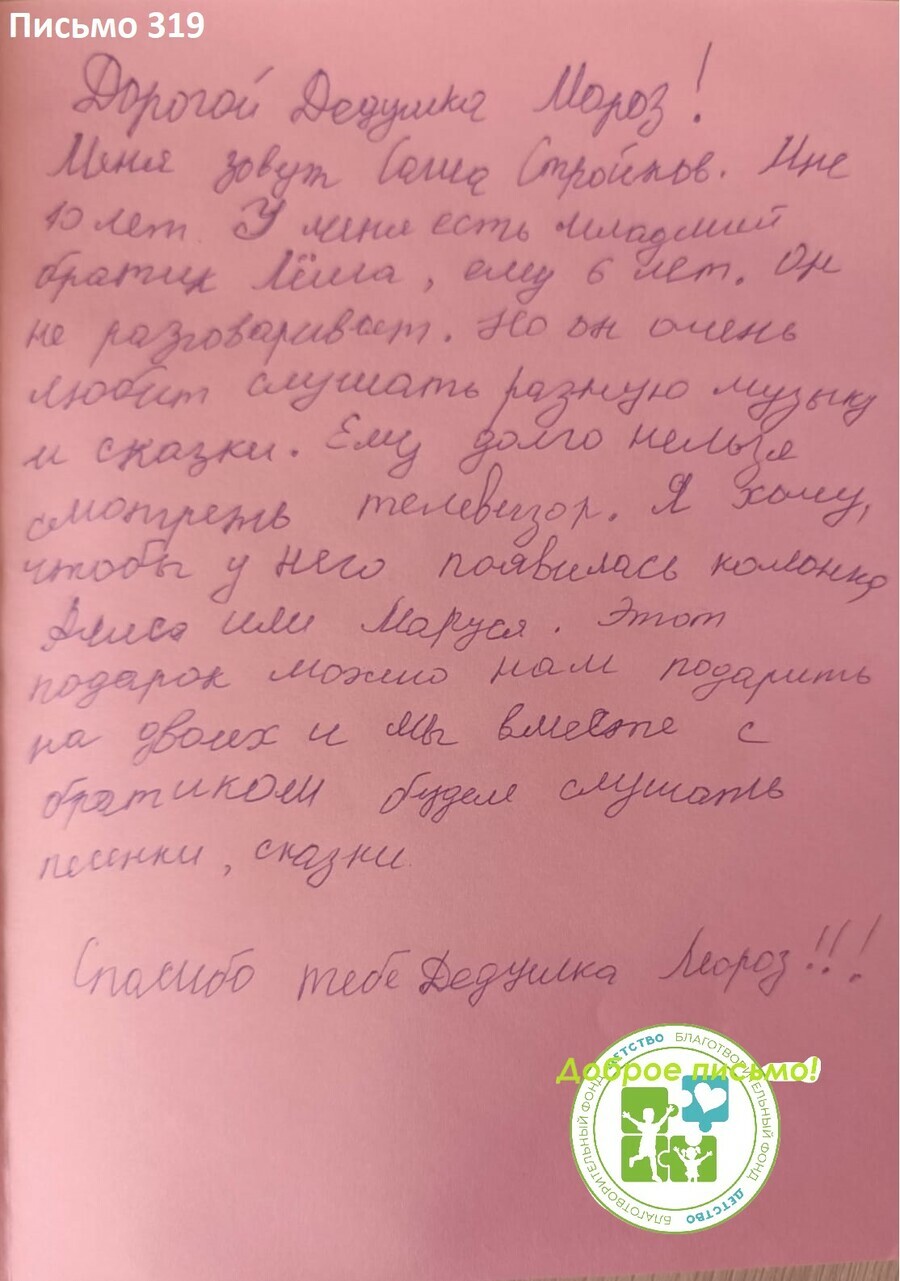 Письмо 319
Дорогой Дедушка Мороз!
Меня зовут Саша Стройков. Мне
10 лет У меня есть младший
братик Лёша, ему 6 лет. Он
не разговаривает. Но он очень
любит слушать разную музыку
и сказки. Ему долго нельзя
смотреть телевизор. Я хочу,
чтобы у него появилась колонка
Алиса или Маруся. Этот
подарок можно нам подарить
на двоих и мы вместе с
братиком будем слушать
песенки, сказки
Спасибо тебе Дедушка Мороз!!!
Доброе письмо!
БЛАГОТВОРИТЕЛЬНЫЙ ФОНД ДЕТСТВО
БЛАГОТВОРИТЕЛЬНЫЙ ФОНД ДЕТСТВО